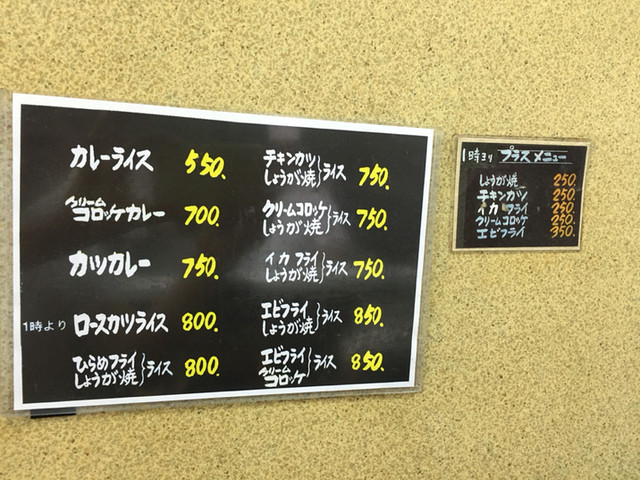 カレーライス 550.
クリーム
コロッケカレー 700.
カツカレー 750.
1時より ロースカツライス 800.
ひらめフライ
しょうが焼 }ライス 800.
チキンカツ
しょうが焼 }ライス 750.
クリームコロッケ
しょうが焼 }ライス 750.
イカフライ
しょうが焼 }ライス 750.
エビフライ
しょうが焼 }ライス 850.
エビフライ
クリーム
コロッケ }ライス 850.
1時ヨリ プラスメニュー
しょうが焼 250.
チキンカツ 250.
イカフライ 250.
クリームコロッケ 250.
エビフライ 350.